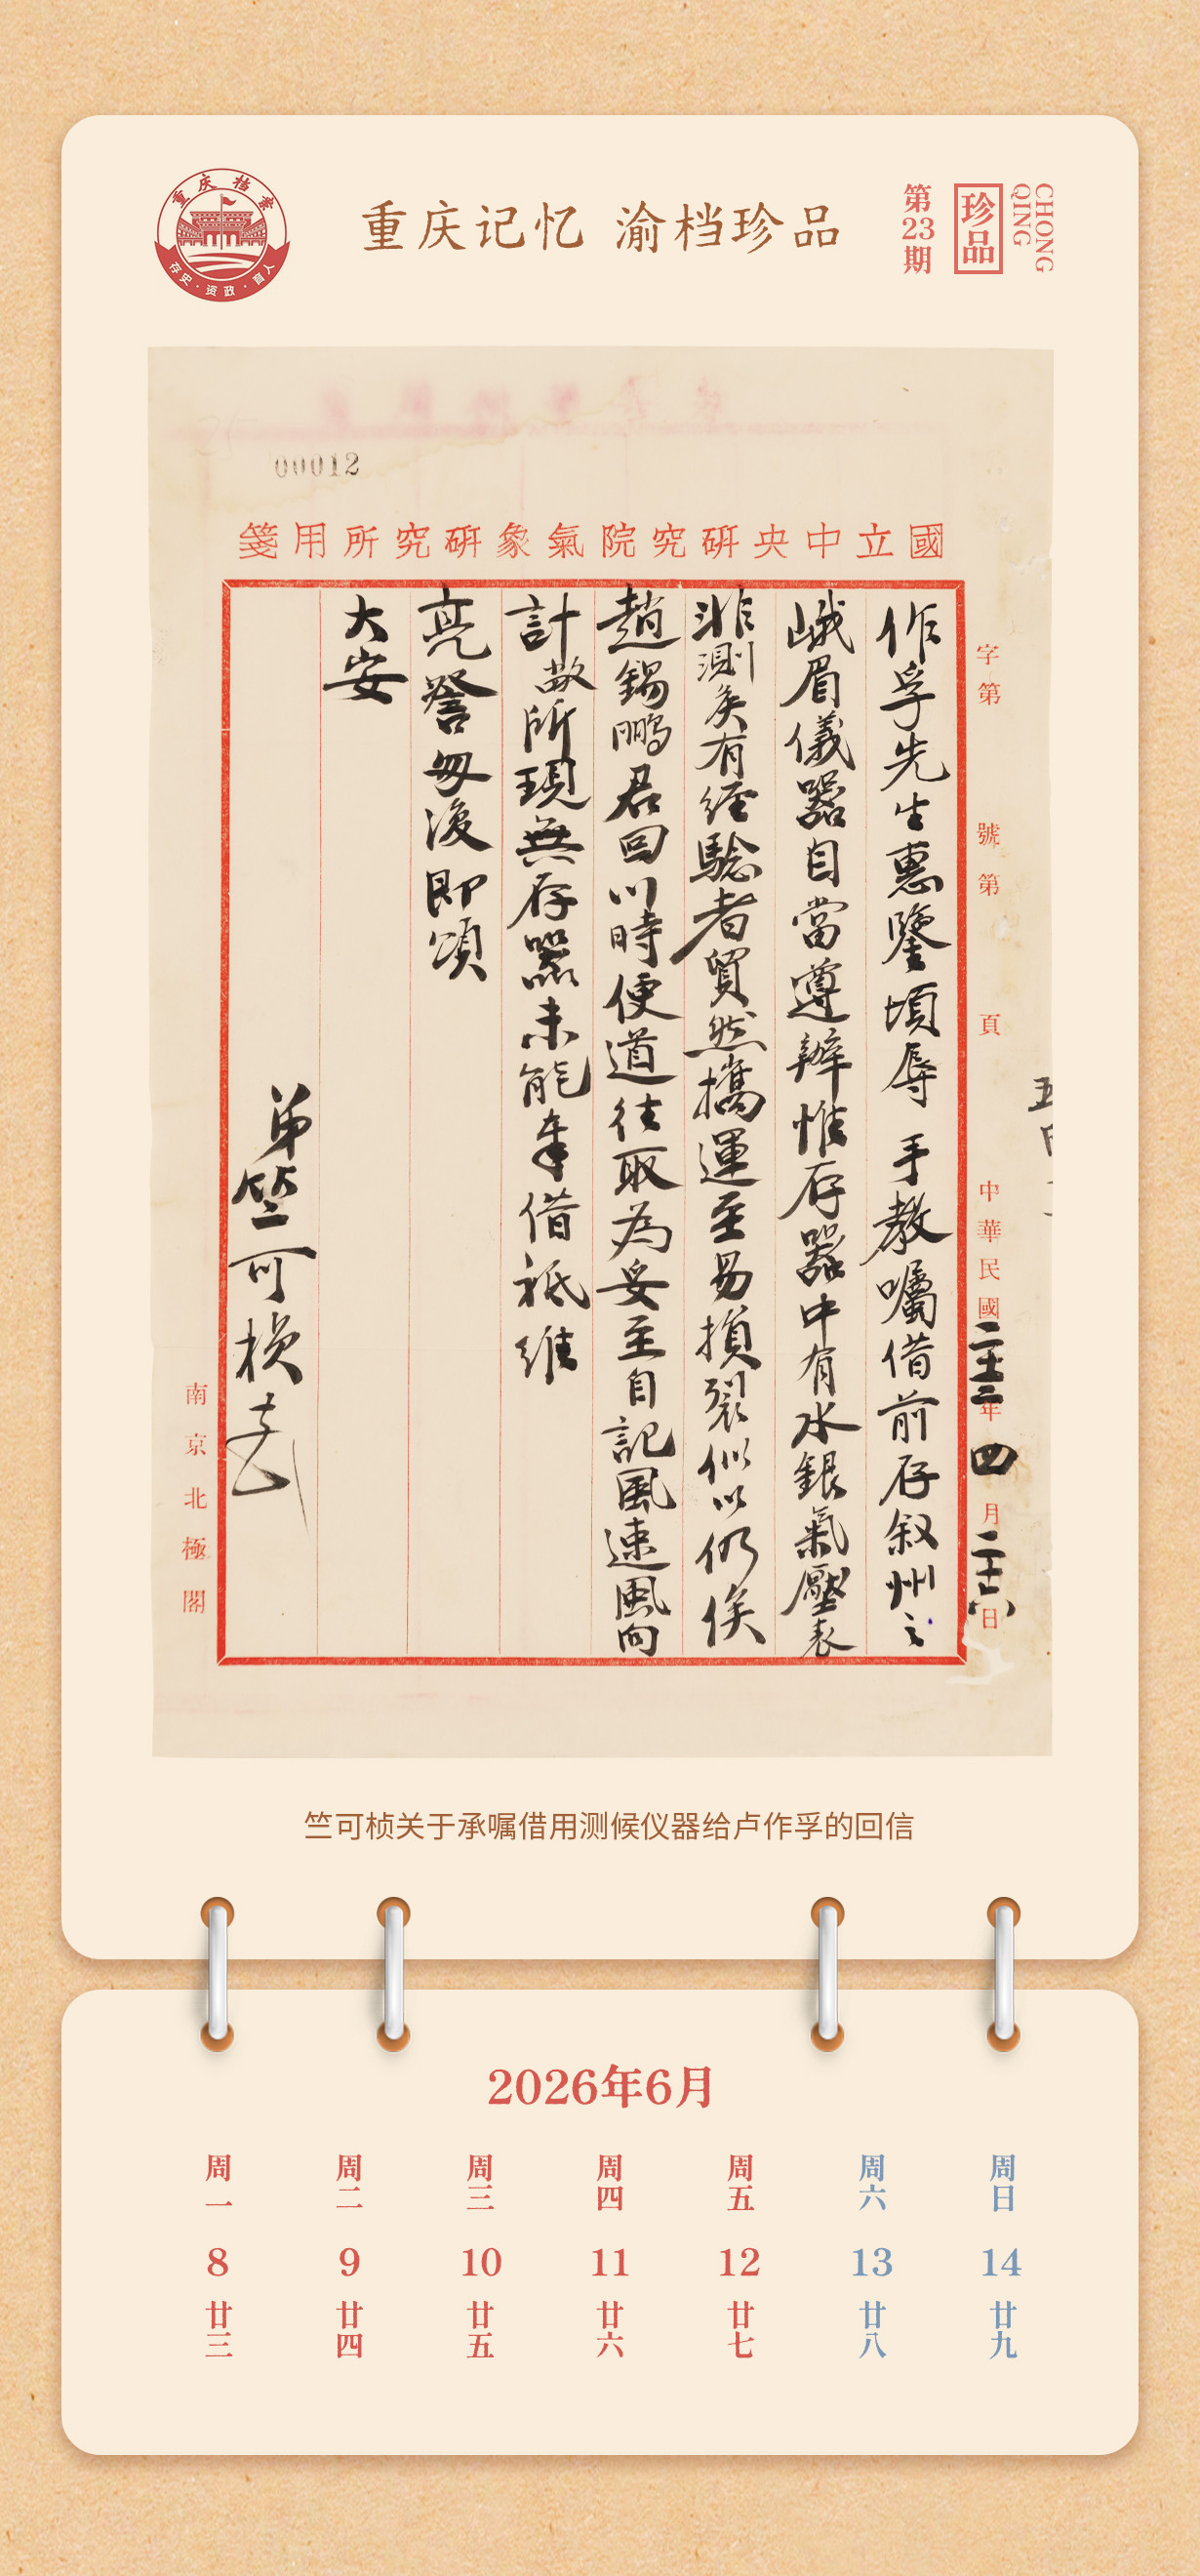 重庆档案
存史·资政·育人
重庆记忆 渝档珍品
第23期
珍品
CHONG
QING
00012
國立中央研究院氣象研究所用箋
字第 號第 頁
中華民國二十三年四月二十六日
作孚先生惠鑒頃辱 手教囑借前存叙州之
峨眉儀器自當遵辦惟存器中有水銀氣壓表
非測候有經驗者貿然攜運至易損裂似以仍俟
趙錫鵬君回川時便道往取為妥至自記風速風向
計敝所現無存器未能奉借祗維
亮詧匆復即頌
大安
弟竺可楨
南京北極閣
竺可桢关于承嘱借用测候仪器给卢作孚的回信
2026年6月
周一 周二 周三 周四 周五 周六 周日
8 9 10 11 12 13 14
廿三 廿四 廿五 廿六 廿七 廿八 廿九